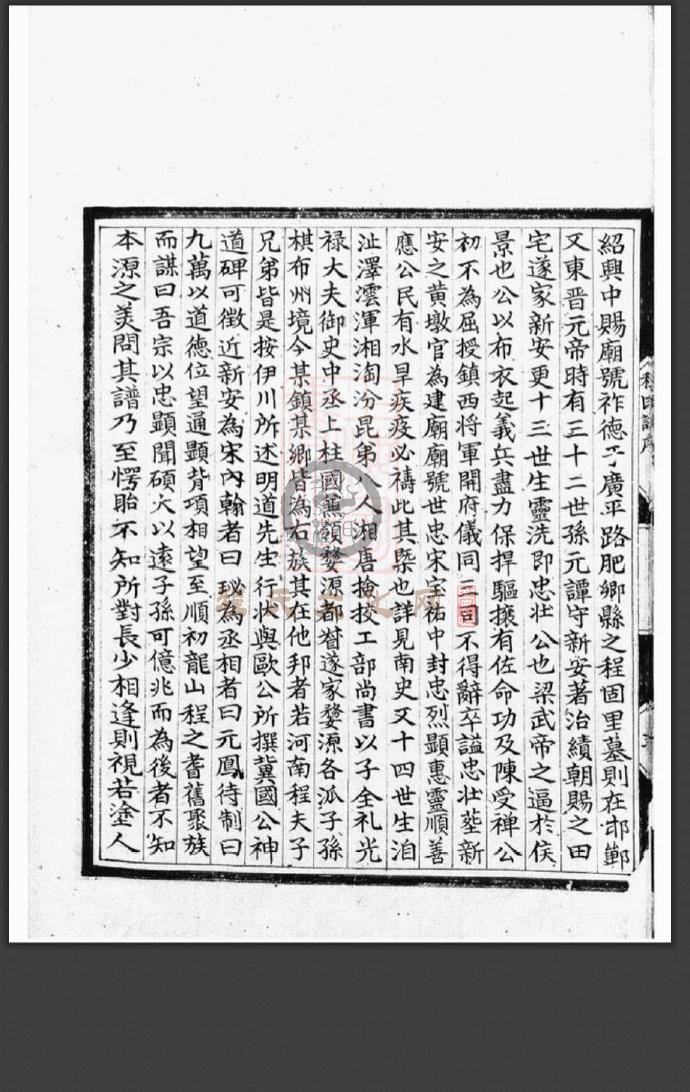 紹興中賜廟號祚德于廣平路肥鄉縣之程固里墓則在邯鄲
又東晋元帝時有三十二世孫元譚守新安著治績朝賜之田
宅遂家新安更十三世生靈洗即忠壮公也梁武帝之逼扵侯
景也公以布衣起義兵盡力保捍驅攘有佐命功及陳受禅公
初不為屈授鎮西将軍開府儀同三司不得辭卒謚忠壮塟新
安之黄墩官為建廟廟號世忠宋宝祐中封忠烈顯惠靈順善
應公民有水旱疾疫必禱此其槩也詳見南史又十四世生洎
沚澤澐渾湘淘汾昆弟八人湘唐撿挍工部尚書以子全礼光
禄大夫御史中丞上柱國兼領婺源都督遂家婺源各派子孫
棋布州境今某鎮某鄉皆為右族其在他邦者若河南程夫子
兄弟皆是按伊川所述明道先生行状與歐公所撰冀國公神
道碑可徵近新安為宋内翰者曰珌為丞相者曰元鳳待制曰
九萬以道德位望通顯背項相望至順初龍山程之耆舊聚族
而謀曰吾宗以忠顯聞碩大以遠子孫可億兆而為後者不知
本源之美問其譜乃至愕眙不知所對長少相逢則視若塗人